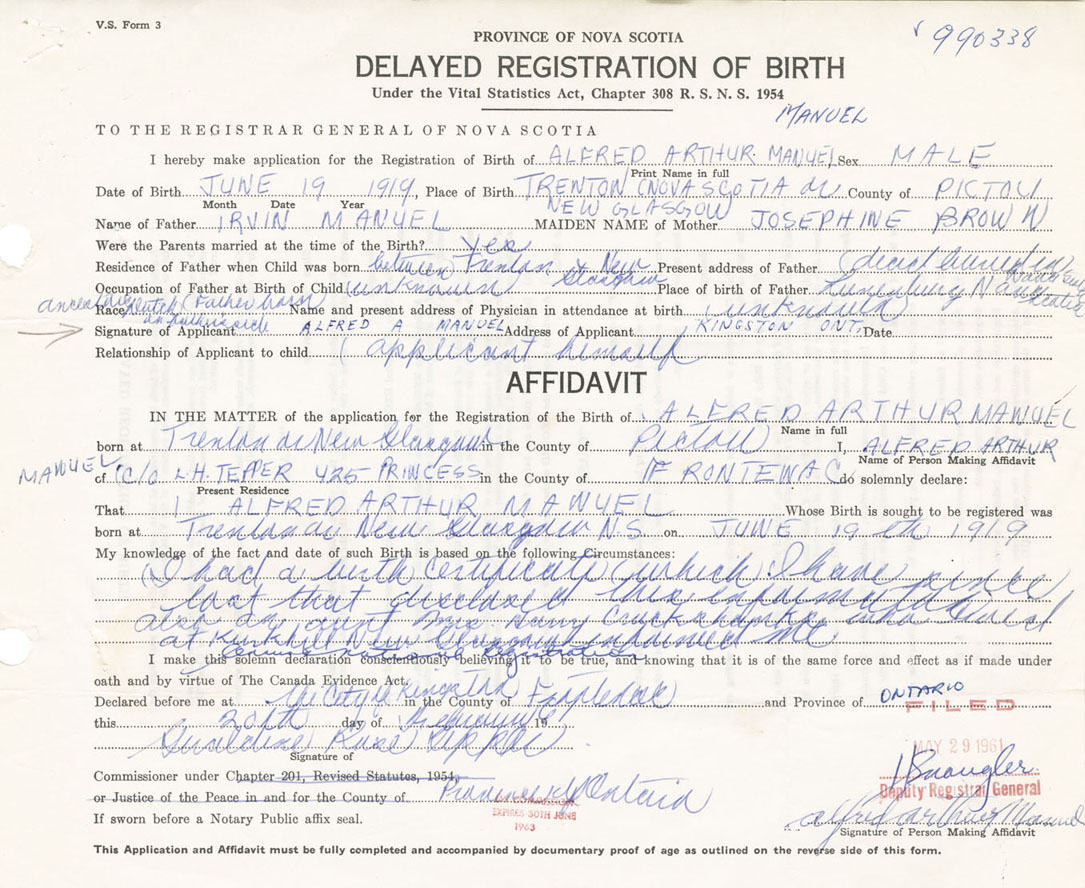 V.S. Form 3
990338
PROVINCE OF NOVA SCOTIA
DELAYED REGISTRATION OF BIRTH
Under the Vital Statistics Act, Chapter 308 R. S. N. S. 1954
MANUEL
TO THE REGISTRAR GENERAL OF NOVA SCOTIA
I hereby make application for the Registration of Birth of ALFRED ARTHUR MANUEL Sex MALE
Print Name in full
Date of Birth JUNE 19 1919 Place of Birth TRENTON (NOVA SCOTIA County of PICTOU
Month Date Year NEW GLASGOW
Name of Father IRVIN MANUEL MAIDEN NAME of Mother JOSEPHINE BROWN
Were the Parents married at the time of the Birth? yes
Residence of Father when Child was born between Trenton & New Glasgow Present address of Father (dead buried in
Occupation of Father at Birth of Child (unknown) Place of birth of Father Lunenburg
Race Dutch (Father born Name and present address of Physician in attendance at birth (unknown)
Signature of Applicant ALFRED A MANUEL Address of Applicant KINGSTON ONT Date
Relationship of Applicant to child (applicant himself
AFFIDAVIT
IN THE MATTER of the application for the Registration of the Birth of ALFRED ARTHUR MANUEL
Name in full
born at Trenton New Glasgow in the County of Pictou I, ALFRED ARTHUR
Name of Person Making Affidavit
MANUEL of (C/o L.H. TEPPER 425 PRINCESS in the County of FRONTEWAC do solemnly declare:
Present Residence
That I ALFRED ARTHUR MANUEL Whose Birth is sought to be registered was
born at Trenton New Glasgow N.S. on JUNE 19th 1919
My knowledge of the fact and date of such Birth is based on the following Circumstances:
(I had a birth certificate (which I have since
lost that disclosed this information
also an aunt Mrs. who lived
at New Glasgow informed me
registration
I make this solemn declaration conscientiously believing it to be true, and knowing that it is of the same force and effect as if made under
oath and by virtue of The Canada Evidence Act.
Declared before me at the City of Kingston in the County of Frontenac and Province of ONTARIO
FILED
this 20th day of 19
MAY 29 1961
Geraldine Rose Tepper
Signature of
Commissioner under Chapter 201, Revised Statutes, 1954,
Deputy Registrar General
or Justice of the Peace in and for the County of Province of Ontario
EXPIRES 30TH JUNE
1963
If sworn before a Notary Public affix seal.
alfred arthur Manuel
Signature of Person Making Affidavit
This Application and Affidavit must be fully completed and accompanied by documentary proof of age as outlined on the reverse side of this form.